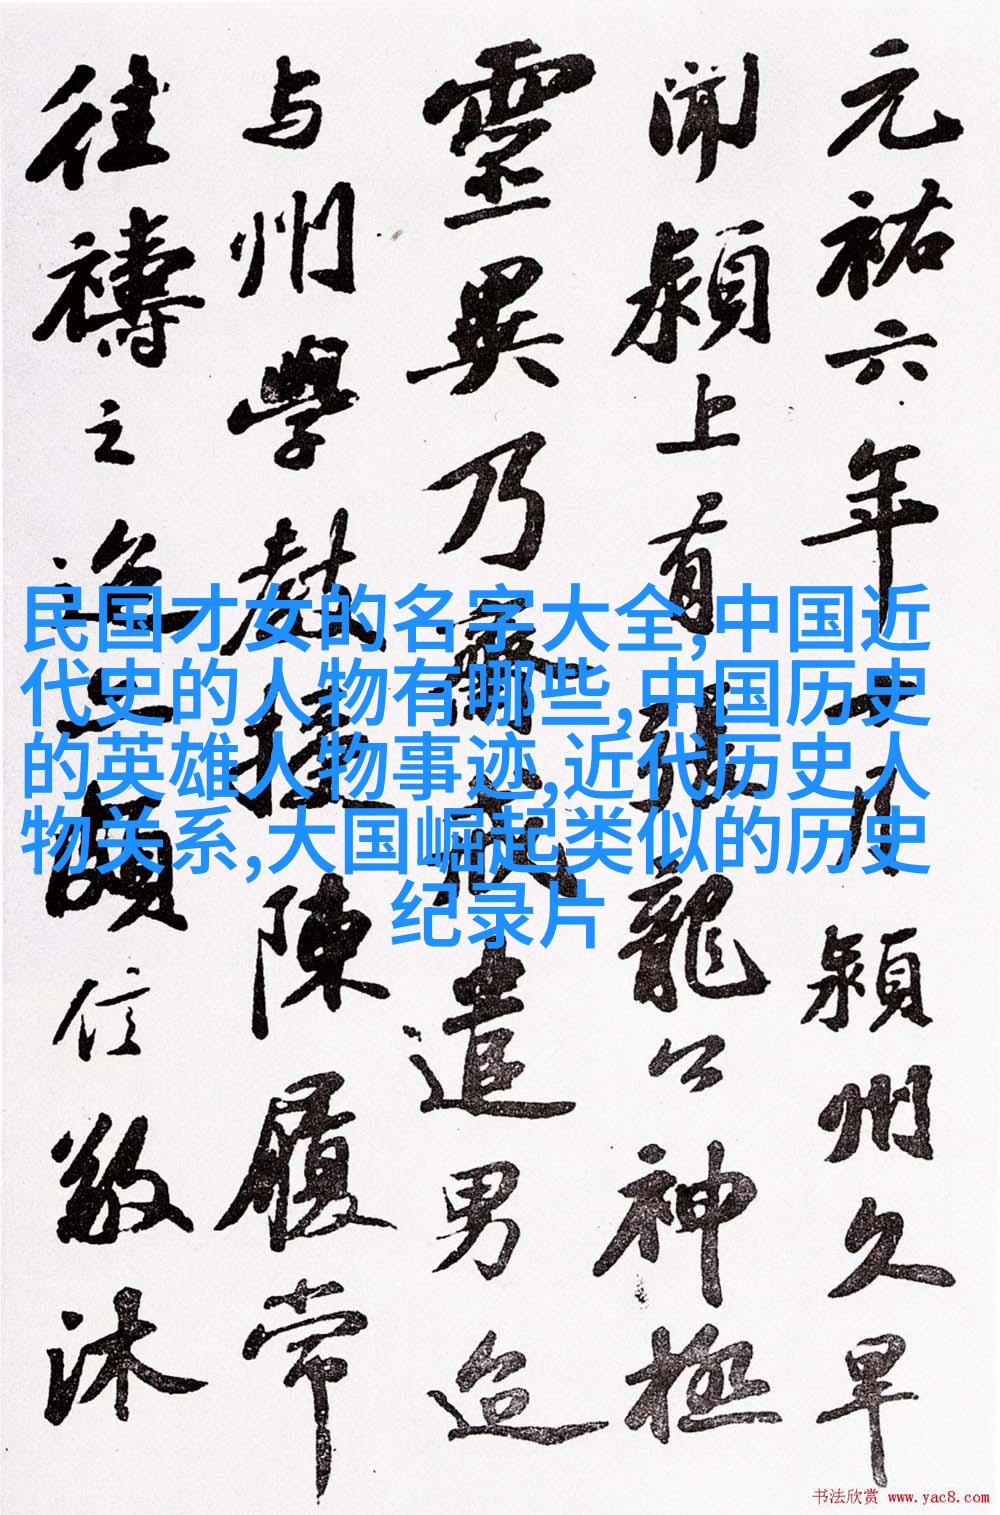 元祐六年十月潁州久旱
聞潁上有張龍公神極
靈異乃齋戒遣男迨
与州學教授陳履常
往禱之迨亦頗信敬沐
民国才女的名字大全,中国近
代史的人物有哪些,中国历史
的英雄人物事迹,近代历史人
物关系,大国崛起类似的历史
纪录片
书法欣赏 www.yac8.com